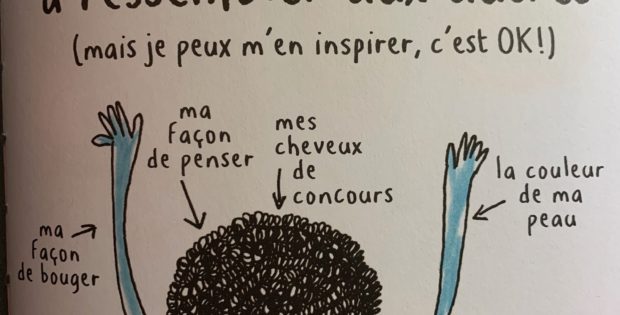 à ressembler aux autres
(mais je peux m'en inspirer, c'est OK!)
ma
façon
de penser
mes
cheveux
de
concours
la couleur
de ma
peau
ma
façon
de bouger